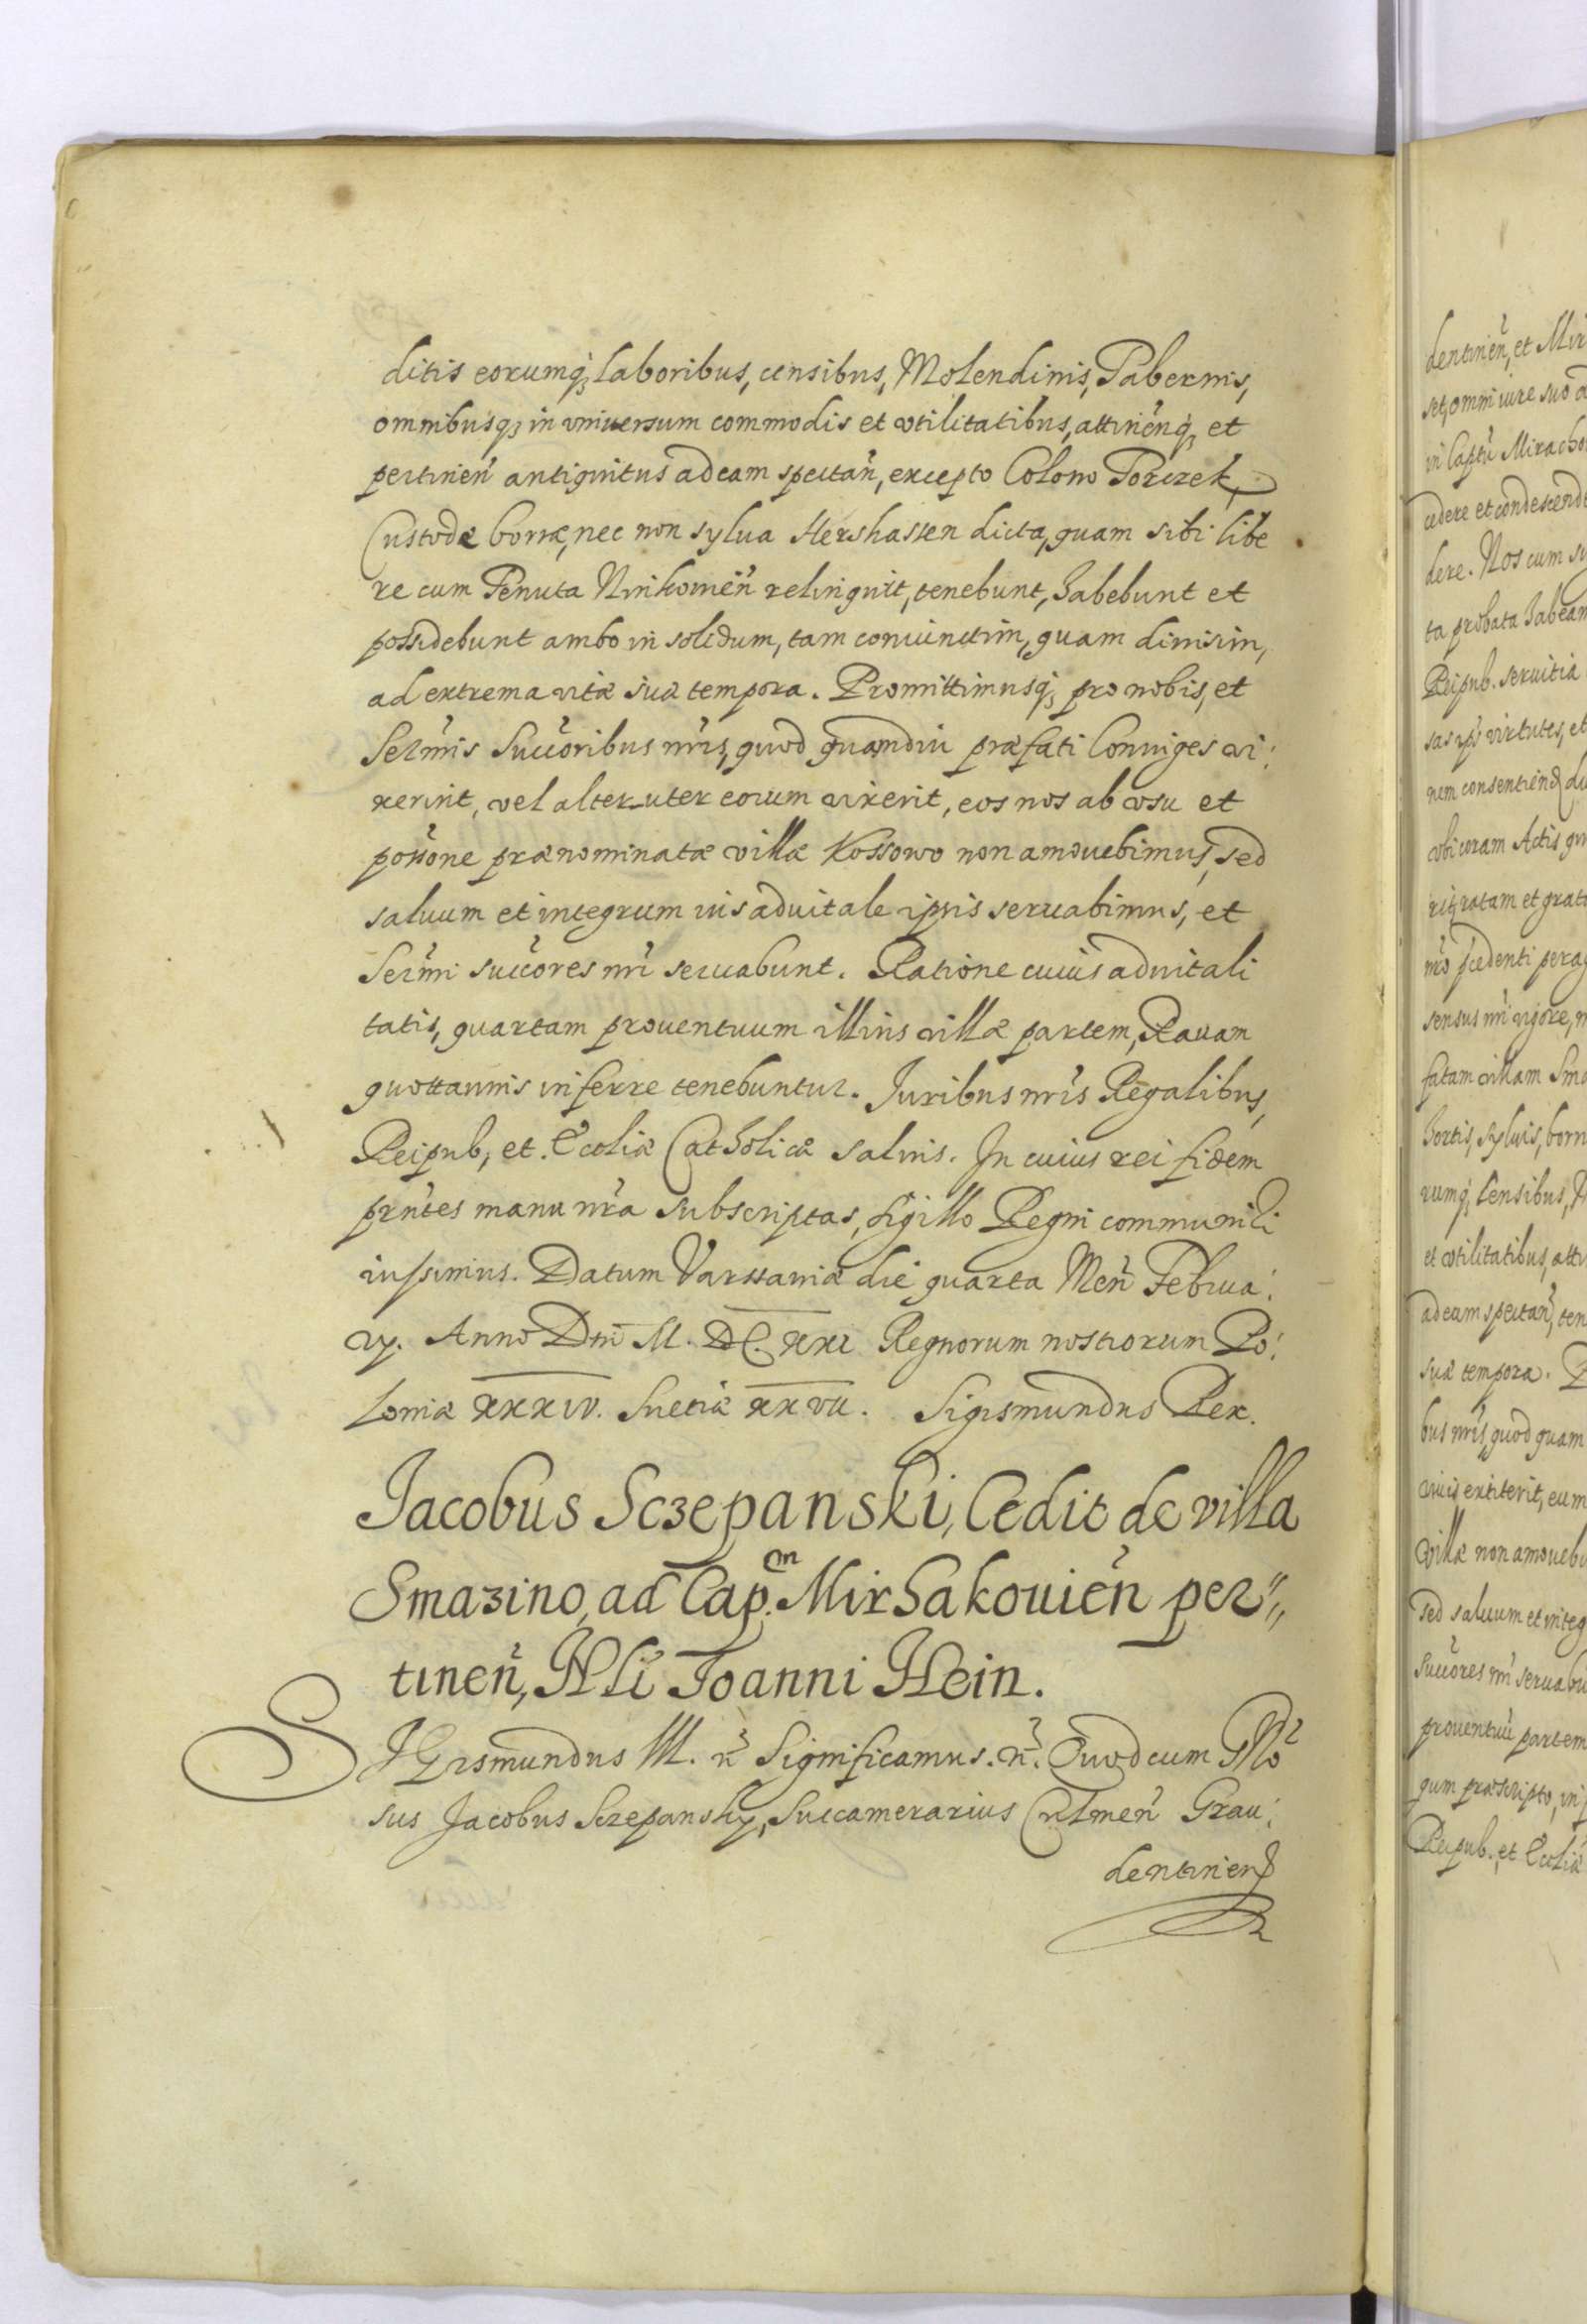 ditis eorumq₃ laboribus, censibus, Molendinis, Tabernis,
omnibusq₃ in vniuersum commodis et vtilitatibus, attineñq₃ et
pertineñ antiquitus ad eam spectañ, excepto Colono Torczek,
Custode borræ, nec non sylua Hershassen dicta, quam sibi libe
re cum Tenuta Mirhouieñ relinquit, tenebunt, habebunt et
possidebunt ambo in solidum, tam coniunctim, quam diuisim,
ad extrema vitæ suæ tempora. Promittimusq₃ pro nobis, et
Serm̃is Succ̃oribus nr̃is, quod quamdiu præfati Coniuges vi:
xerint, vel alter uter eorum vixerit, eos nos ab vsu et
poss̃one prænominatæ villæ Kossowo non amouebimus, sed
saluum et integrum ius aduitale ipsis seruabimus, et
Serm̃i succ̃ores nr̃i seruabunt. Ratione cuius aduitali
tatis, quartam prouentuum illius villæ partem, Rauam
quottannis inferre tenebuntur. Juribus nr̃is Regalibus,
Reipub, et Ecc̃liæ Catholicæ saluis. In cuius rei fidem
prñtes manu nr̃a subscriptas, sigillo Regni communiri
iussimus. Datum Varssauiæ die quarta Meñ Februa:
ry. Anno Dñi M. DC. XXI Regnorum nostrorum Po:
loniæ XXXIV. Sueciæ XXVII. Sigismundus Rex.
Jacobus Sczepanski, Cedit de villa
Smazino, ad Cap.m Mirhakouieñ per„
tineñ, Nli Joanni Hein.
SIGismundus III. ñ Significamus. ñ. Quod cum Gño
sus Jacobus Sczepansky, Succamerarius Culmeñ Grau:
dentinen
dentineñ, et Mir
set, omni iure suo a
in Captũ Miracho
cedere et condescend
dere. Nos cum su
ta probata habeam
Reipub. seruitia
sas ips virtutes, et
nem consentiend du
vbi coram Actis qu
rit, ratam et grat
nr̃o
sensus nr̃i vigore, n
fatam villam Sma
hortis, syluis, borr
rumq₃ Censibus, M
et vtilitatibus, atti
ad eam spectañ, ten
suæ tempora. P
bus nr̃is, quod quam
viuis extiterit, eum
villæ non amouebi
sed saluum et integ
Succ̃ores nr̃i seruabu
prouentuũ partem
gum præscripto, in
Reipub. et Ecc̃liæ